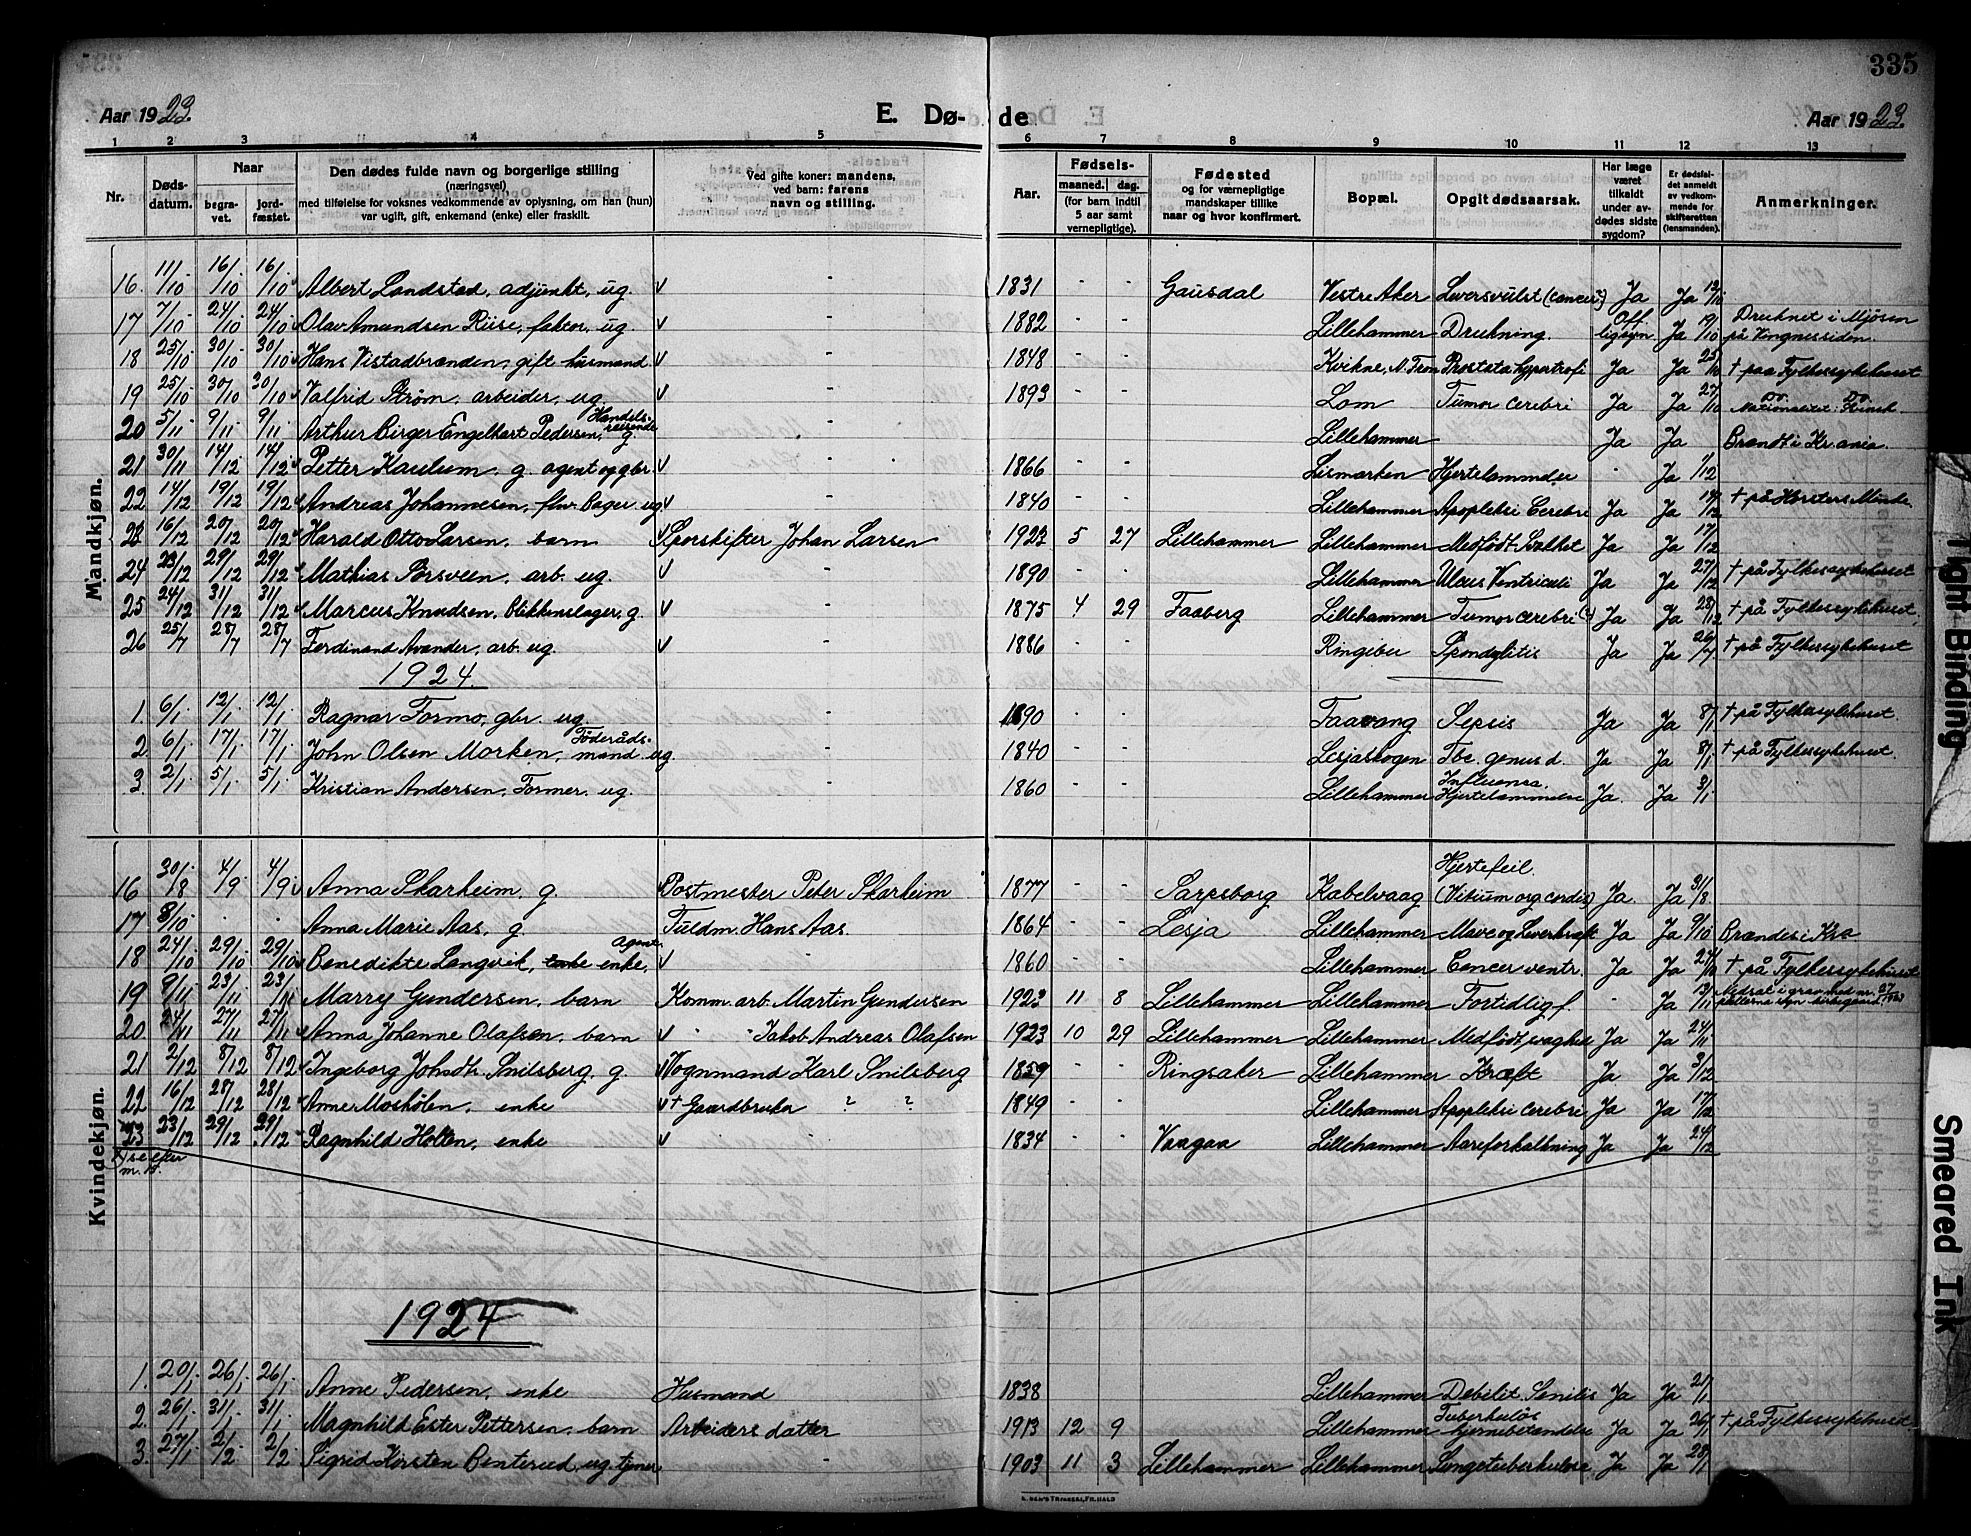 335
Aar 1923. E. Dø- de Aar 1923.
1 2 3 4 5 6 7 8 9 10 11 12 13
Nr. Døds-datum. Naar begra-vet. jord-fæstet. Den dødes fulde navn og borgerlige stilling (næringsvei) med tilføielse for voksnes vedkommende av oplysning, om han (hun) var ugift, gift, enkemand (enke) eller fraskilt. Ved gifte koner: mandens, ved barn: farens navn og stilling. Aar. Fødsels- maaned. dag. (for barn indtil 5 aar samt vernepligtige). Fødested og for værnepligtige mandskaper tillike naar og hvor konfirmert. Bopæl. Opgit dødsaarsak. Har læge været tilkaldt under av-dødes sidste sygdom? Er dødsfal-det anmeldt av vedkom-mende for skifteretten (lensmanden). Anmerkninger.
Mandkjøn.
16. 11/10 16/10 16/10 Albert Landstad, adjunkt, ug. v - 1831 - - Gausdal Vestre Aker Leversvulst (cancer?) Ja Ja 12/10
17 7/10 24/10 24/10 Olav Amundsen Riise, faktor, ug. v - 1882 - - Lillehammer Drukning. Off. ligsyn Ja 19/10 Druknet i Mjøsen på Vingnessiden.
18 25/10 30/10 30/10 Hans Vistadbrænden, gift husmand v - 1848 - - Kvikne, N. Fron Prostatahypertrofi Ja Ja 25/10 † paa Fylkessykehuset
19 25/10 30/10 30/10 Valfrid Strøm, arbeider, ug. v - 1893 - - Lom Tumor cerebri Ja Ja 27/10 Do. Do. Nationalitet: Finsk
20 5/11 9/11 9/11 Arthur Birger Engelhart Pedersen, Handels-reisende g. - Lillehammer Ja Ja Brændt i Kr.ania.
21 30/11 14/12 14/12 Petter Kaulum, g. agent og gbr. v - 1866 - - Lismarken Hjertelammelse - Ja 1/12
22 14/12 19/12 19/12 Andreas Johannesen, fhv. Bager ug v - 1840 - - Lillehammer Apopleksi Cerebri Ja Ja 17/12 † på Horsters Minde
23 16/12 20/12 20/12 Harald Otto Larsen, barn v Sporskifter Johan Larsen 1923 5 27 Lillehammer Lillehammer Medfödt Svakhet Ja Ja 17/12
24 23/12 29/12 29/12 Mathias Sørsveen, arb. ug. v - 1890 - - Lillehammer Ulcus Ventriculi Ja Ja 27/12 † på Fylkessykehuset
25 24/12 31/12 31/12 Marcus Knudsen, Blikkenslager, g. v - 1875 4 29 Faaberg Lillehammer Tumor cerebri (?) Ja Ja 28/12 † på Fylkessykehuset
26 25/7 28/7 28/7 Ferdinand Avander, arb. ug. v - 1886 - - Ringebu Spondylitis Ja Ja 26/7 † på Fylkessykehuset
1924.
1. 6/1 12/1 12/1 Ragnar Formo, gbr. ug. - 1890 - - Faavang Sepsis Ja Ja 8/1 † på Fylkessykehuset.
2. 6/1 17/1 17/1 John Olsen Morken, Föderåds-mand ug. - 1840 - - Lesjaskogen Tbc. genus d. Ja Ja 8/1 † på Fylkessykehuset.
3. 2/1 5/1 5/1 Kristian Andersen, Former. ug. - 1860 - - Lillehammer Influensa. Hjertelammelse Ja. Ja 3/1
Kvindekjøn.
16 30/8 4/9 4/9 Anna Skarheim, g. v Postmester Peter Skarheim 1877 - - Sarpsborg Kabelvaag Hjertefeil. (Vitium org. cordis) Ja Ja 31/8
17 8/10 . . Anna Marie Aas, g. Fuldm. Hans Aas 1864 - - Lesja Lillehammer Mave og Leverkræft Ja Ja 9/10 Brændes i Kra
18 24/10 29/10 29/10 Benedikte Langvik, enke, agent. v " 1860 - - Lillehammer Cancer ventr. Ja Ja 27/10 † på Fylkessykehuset
19 9/11 23/11 23/11 Marry Gundersen, barn Komm. arb. Martin Gundersen 1923 11 8 Lillehammer Lillehammer For tidlig f. - Ja 13/11 Nedsat i grav med nr. 27
20. 24/11 27/11 27/11 Anna Johanne Olafsen, barn v " " Jakob Andreas Olafsen 1923 10 29 Lillehammer Lillehammer Medfödt svaghed Ja Ja 24/11
21 2/12 8/12 8/12 Ingeborg Johsdtr. Snilsberg, g. v Vognmand Karl Snilsberg 1859 - - Ringsaker Lillehammer Kræft Ja Ja 3/12
22 16/12 28/12 28/12 Anne Moshölen, enke v † Gaardbruker ? ? 1849 - - Lillehammer Apopleksi cerebri Ja Ja 17/12
23 23/12 29/12 29/12 Ragnhild Holten, enke v " " 1834 - - Vaagaa Lillehammer Aareforkalkning Ja Ja 24/12
se efter
1924
1. 20/1 26/1 26/1 Anne Pedersen, enke Husmand 1838 Lillehammer Debilit. Senilis Ja Ja 21/1
2. 26/1 31/1 31/1 Magnhild Ester Pettersen, barn Arbeiders datter 1913 12 9 Lillehammer Tuberkuløs hjernebetændelse Ja Ja 26/1 † på Fylkessykehuset
3. 27/1 2/2 2/2 Sigrid Kirsten Benterud, ug. tjener - 1903 11 3 Lillehammer Lillehammer Lungetuberkulose Ja Ja 28/1
Tight Binding
Smeared Ink